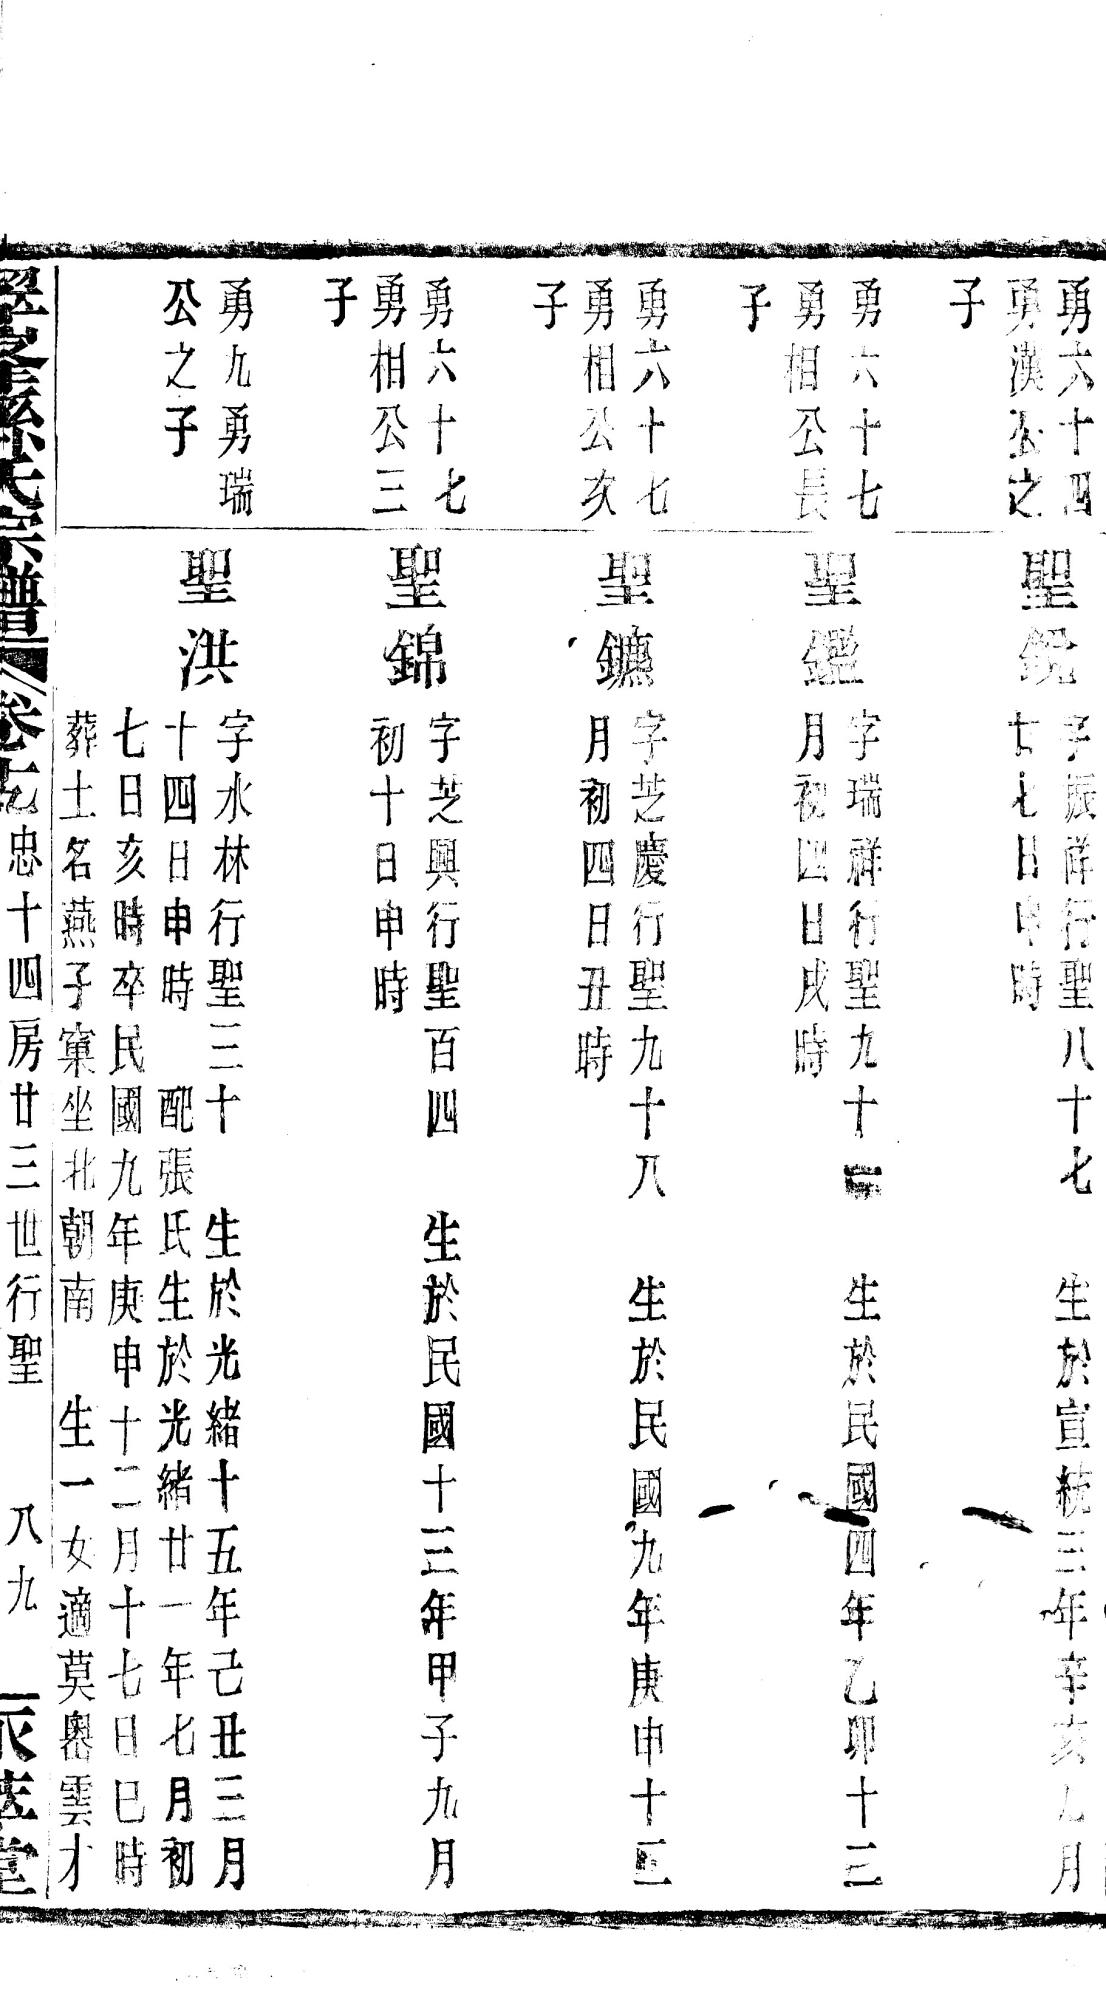 勇六十四
勇漢公之
子
聖鋭
字振祥行聖八十七 生於宣統三年辛亥九月
廿七日申時
勇六十七
勇相公長
子
聖鑑
字瑞祥行聖九十 生於民國四年乙卯十二
月初四日戌時
勇六十七
勇相公次
子
聖鑣
字芝慶行聖九十八 生於民國九年庚申十
月初四日丑時
勇六十七
勇相公三
子
聖錦
字芝興行聖百四 生於民國十三年甲子九月
初十日申時
勇九勇瑞
公之子
聖洪
字水林行聖三十 生於光緒十五年己丑三月
十四日申時 配張氏生於光緒廿一年七月初
七日亥時卒民國九年庚申十二月十七日巳時
葬土名燕子窠坐北朝南 生一女適莫嶴雲才
孫氏宗譜 卷 忠十四房廿三世行聖 八九 堂